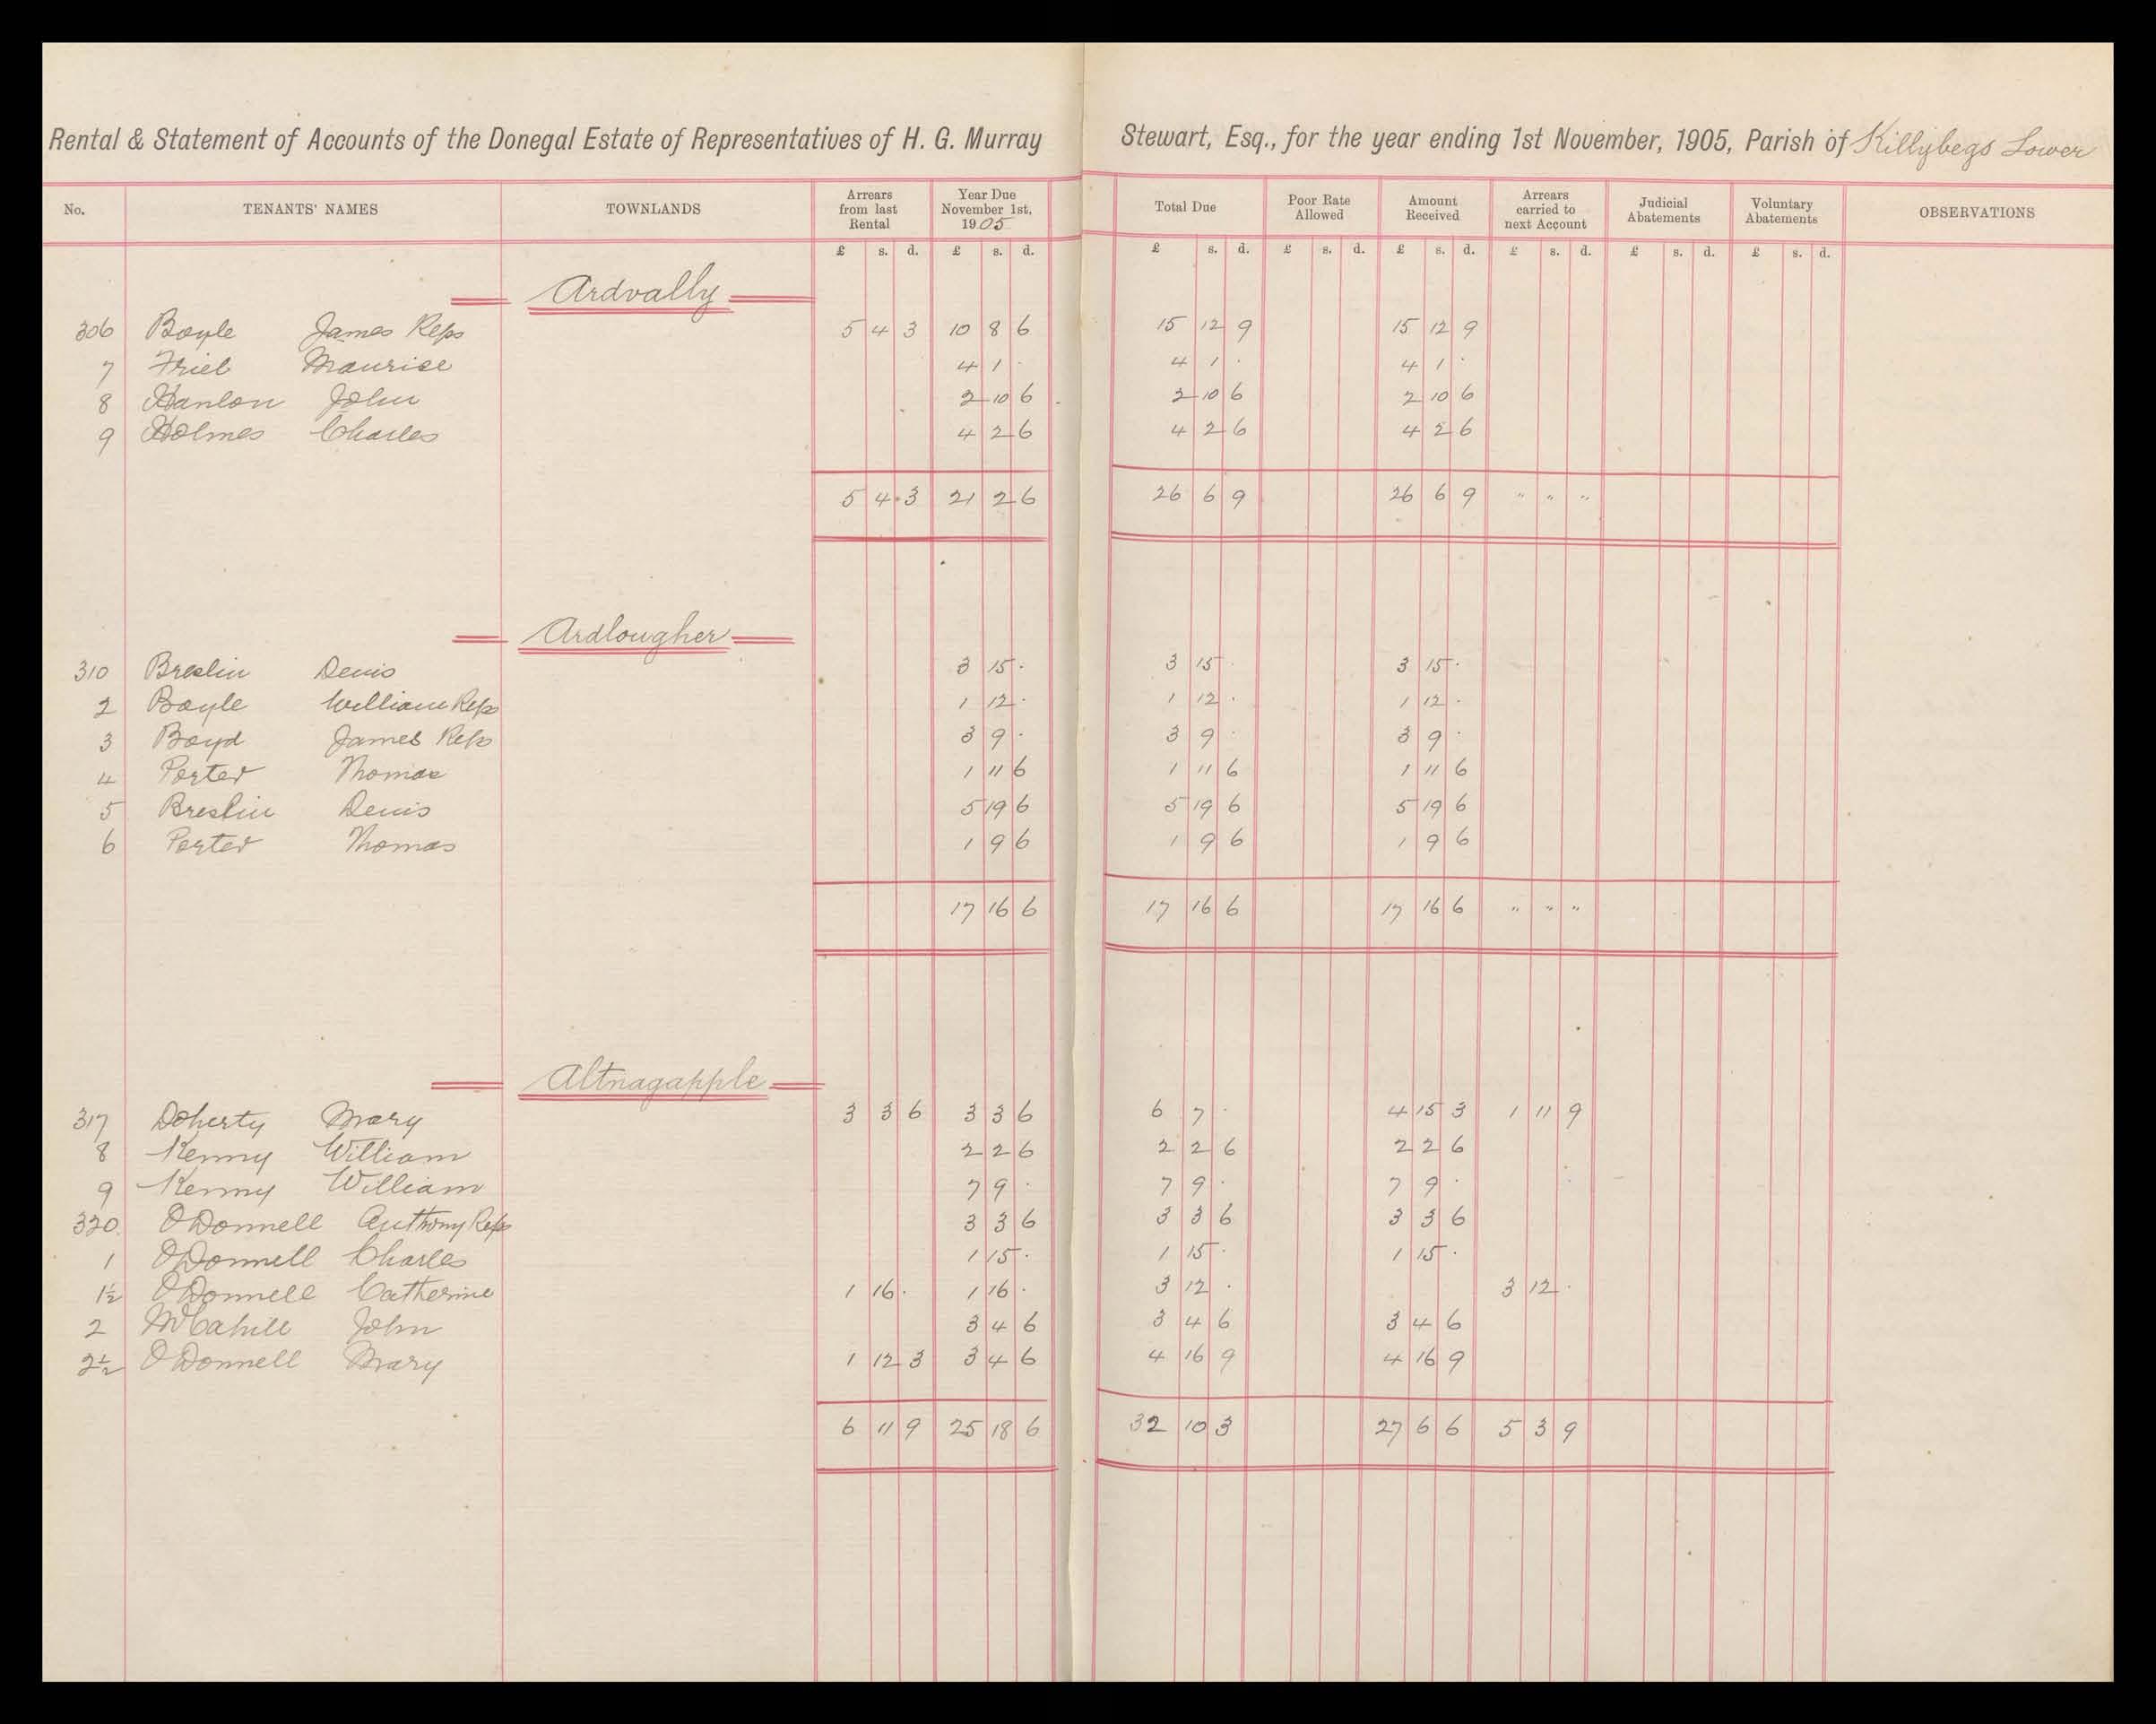 Rental & Statement of Accounts of the Donegal Estate of Representatives of H. G. Murray Stewart, Esq., for the year ending 1st November, 1905, Parish of Killybegs Lower
No. TENANTS' NAMES TOWNLANDS Arrears from last Rental Year Due November 1st, 1905 Total Due Poor Rate Allowed Amount Received Arrears carried to next Account Judicial Abatements Voluntary Abatements OBSERVATIONS
£ s. d. £ s. d. £ s. d. £ s. d. £ s. d. £ s. d. £ s. d. £ s. d.
Ardvally
306 Boyle James Reps 5 4 3 10 8 6 15 12 9 15 12 9
7 Friel Maurice 4 1 · 4 1 · 4 1 ·
8 Hanlon John 2 10 6 2 10 6 2 10 6
9 Holmes Charles 4 2 6 4 2 6 4 2 6
5 4 3 21 2 6 26 6 9 26 6 9 " " "
Ardlougher
310 Breslin Denis 3 15 · 3 15 · 3 15 ·
2 Boyle William Reps 1 12 · 1 12 · 1 12 ·
3 Boyd James Reps 3 9 · 3 9 · 3 9 ·
4 Porter Thomas 1 11 6 1 11 6 1 11 6
5 Breslin Denis 5 19 6 5 19 6 5 19 6
6 Porter Thomas 1 9 6 1 9 6 1 9 6
17 16 6 17 16 6 17 16 6 " " "
Altnagapple
317 Doherty Mary 3 3 6 3 3 6 6 7 · 4 15 3 1 11 9
8 Kenny William 2 2 6 2 2 6 2 2 6
9 Kenny William 7 9 · 7 9 · 7 9 ·
320 O'Donnell Anthony Reps 3 3 6 3 3 6 3 3 6
1 O'Donnell Charles 1 15 · 1 15 · 1 15 ·
1½ O'Donnell Catherine 1 16 · 1 16 · 3 12 · 3 12 ·
2 McCahill John 3 4 6 3 4 6 3 4 6
2½ O'Donnell Mary 1 12 3 3 4 6 4 16 9 4 16 9
6 11 9 25 18 6 32 10 3 27 6 6 5 3 9